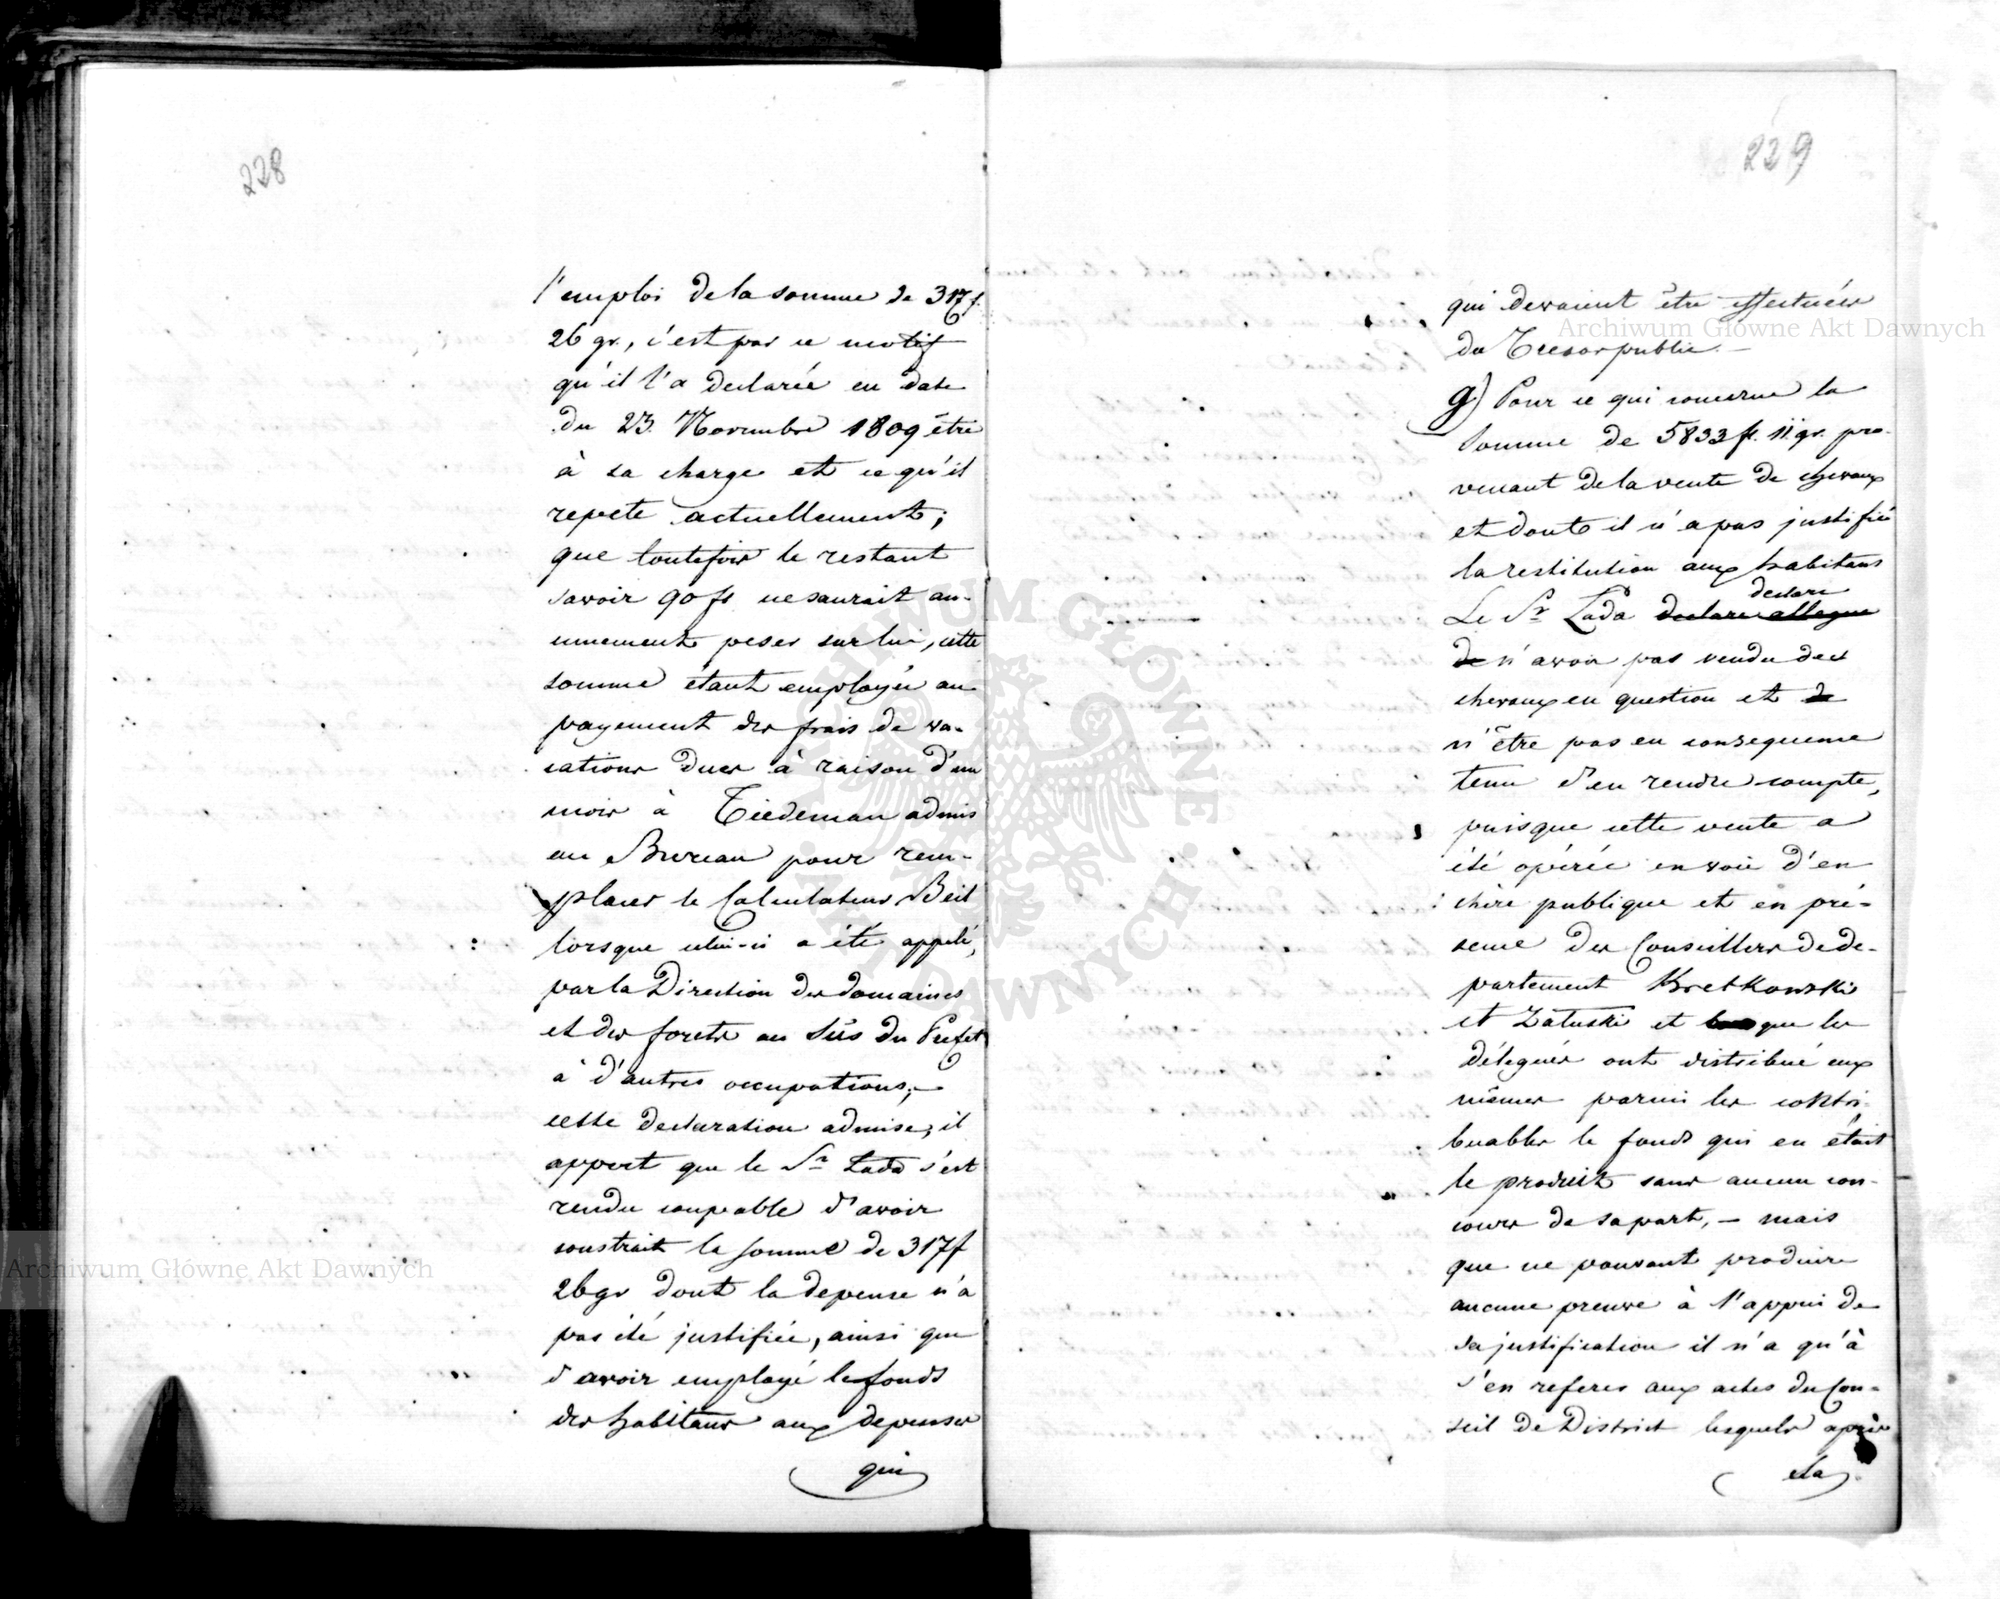 228
l'emploi de la somme de 317 f.
26 gr., c'est par ce motif
qu'il l'a declarée en date
du 23. Novembre 1809 être
à sa charge et ce qu'il
repete actuellement;
que toutefois le restant
savoir 90 fl ne saurait au-
cunement peser sur lui, cette
somme étant employée au
payement des frais de va-
cations dues à raison d'un
mois à Tiedeman admis
au Bureau pour rem-
placer le Calculateur Beil
lorsque celui-ci a été appelé,
par la Direction des domaines
et des forets au sûs du Préfet
à d'autres occupations,-
cette declaration admise, il
appert que le Sr Lada s'est
rendu coupable d'avoir
soustrait la somme de 317 f
26 gr dont la depense n'a
pas été justifiée, ainsi que
d'avoir employé le fonds
des habitans aux depenses
qui
229
qui devaient être effectuées
du Tresor public. -
g) Pour ce qui concerne la
somme de 5833 fl. 11 gr. pro-
venant de la vente de chevaux
et dont il n'a pas justifié
la restitution aux habitans
declare
Le Sr Lada declare allegue
de n'avoir pas vendu des
chevaux en question et de
n'être pas en consequence
tenu d'en rendre compte,
puisque cette vente a
été opérée en voie d'en
chère publique et en pré-
sence des Conseillers de de-
partement Kretkowski
et Załuski et que les
délegués ont distribué eux
mêmes parmi les contri-
buables le fonds qui en était
le produit sans aucun con-
cours de sa part, - mais
que ne pouvant produire
aucune preuve à l'appui de
sa justification il n'a qu'à
s'en referer aux actes du Con-
seil de District lesquels après
la
Archiwum Główne Akt Dawnych
Archiwum Główne Akt Dawnych
ARCHIWUM GŁÓWNE AKT DAWNYCH